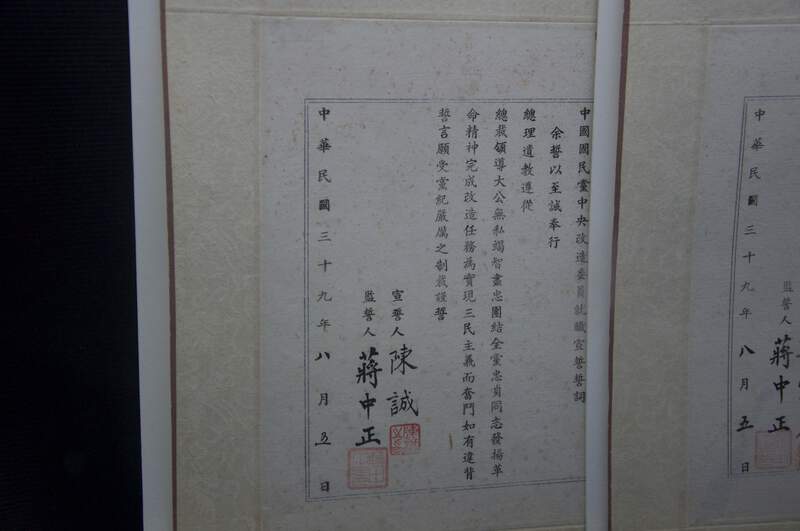 中國國民黨中央改造委員就職宣誓誓詞
余誓以至誠奉行
總理遺教遵從
總裁領導大公無私竭智盡忠團結全黨忠貞同志發揚革
命精神完成改造任務為實現三民主義而奮鬥如有違背
誓言願受黨紀嚴厲之制裁謹誓
宣誓人 陳誠
監誓人 蔣中正
中華民國三十九年八月五日
監誓人 蔣中正
中華民國三十九年八月五日